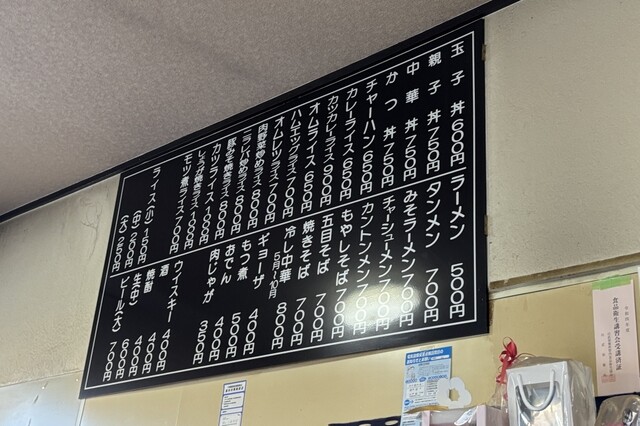 玉子丼 600円
親子丼 750円
中華丼 750円
かつ丼 750円
チャーハン 650円
カレーライス 650円
カツカレーライス 900円
オムライス 650円
ハムエッグライス 700円
オムレツライス 700円
肉野菜炒めライス 800円
ニラレバ炒めライス 800円
豚みそ焼きライス 800円
カツライス 1000円
しょうが焼きライス 1000円
モツ煮ライス 700円
ライス(小) 150円
(中) 200円
(大) 250円
ラーメン 500円
タンメン 700円
みそラーメン 700円
チャーシューメン 700円
カントンメン 700円
もやしそば 700円
五目そば 700円
焼きそば 700円
冷し中華 800円
5月〜10月
ギョーザ 400円
もつ煮 500円
おでん 400円
肉じゃが 350円
ウィスキー 400円
酒 400円
焼酎 400円
生(中) 600円
ビール(大) 700円
食品衛生講習会受講済証